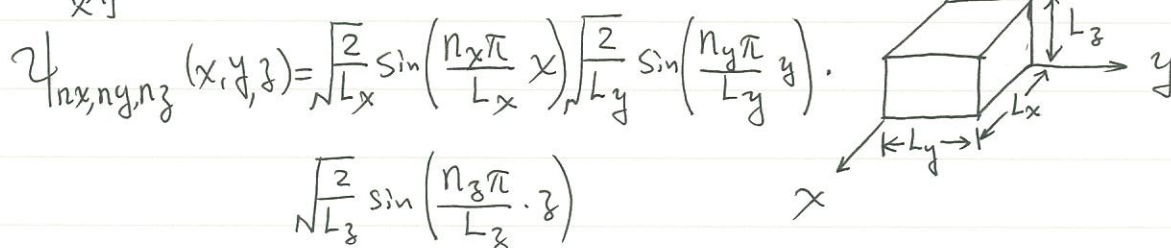 ψnx,ny,nz (x,y,z)= √2/Lx sin(nxπ/Lx x) √2/Ly sin(nyπ/Ly y) ·
√2/Lz sin(nzπ/Lz · z)
Lz
y
Lx
Ly
x